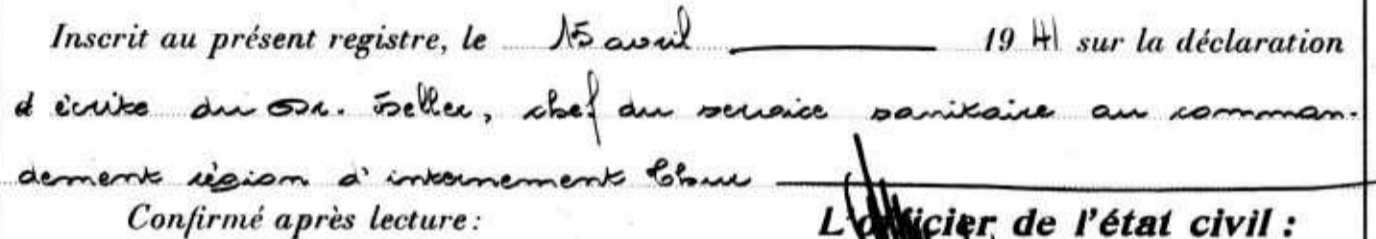 Inscrit au présent registre, le 15 avril 1941 sur la déclaration
d écrite du Dr. Seller, chef du service sanitaire au comman-
dement région d'internement Chur
Confirmé après lecture: L'officier de l'état civil: